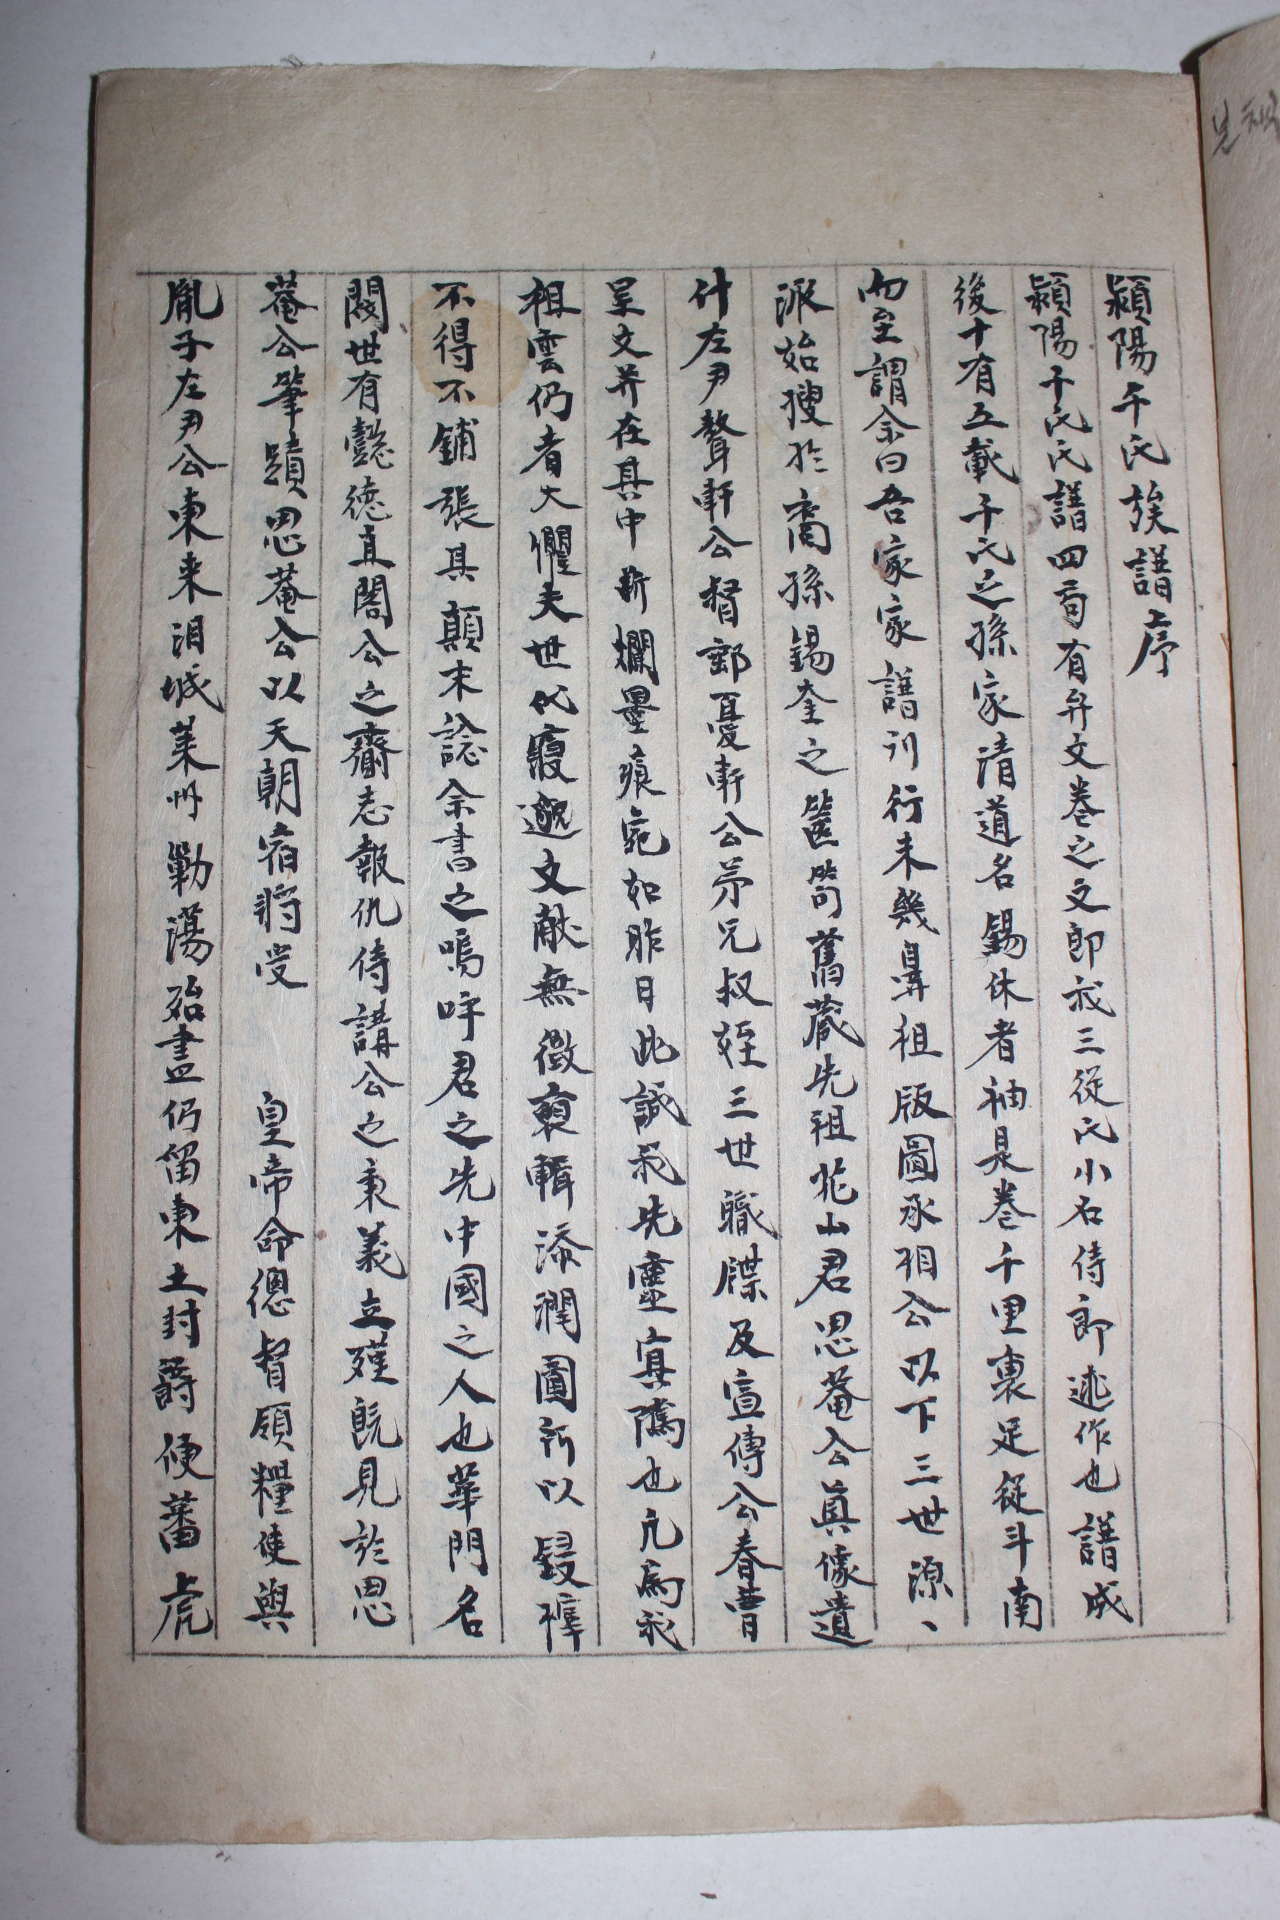 潁陽千氏族譜序
潁陽千氏氏譜四局有弁文卷之文郎我三從氏小石侍郎述作也譜成
後十有五載千氏之孫家清道名錫休者袖是卷千里裹足從斗南
而至謂余曰吾家家譜刊行未幾鼻祖版圖承相公以下三世源丶
派始搜於裔孫錫奎之篋笥舊藏先祖花山君思菴公眞像遺
什左尹聱軒公督郵憂軒公弟兄叔姪三世職牒及宣傳公春曹
呈文并在其中斬爛墨痕宛如昨日此誠我先靈寘隲也凡爲我
祖雲仍者大懼夫世代寢邈文献無徵裒輯添潤圖所以鋟梓
不得不鋪張其顛末諗余書之嗚呼君之先中國之人也華門名
閥世有懿德直閣公之齎志報仇侍講公之秉義立殣旣見於思
菴公筆蹟思菴公以天朝宿將受 皇帝命總督領糧使與
胤子左尹公東来泪城萊州勦蕩殆盡仍留東土封爵便蕃虎